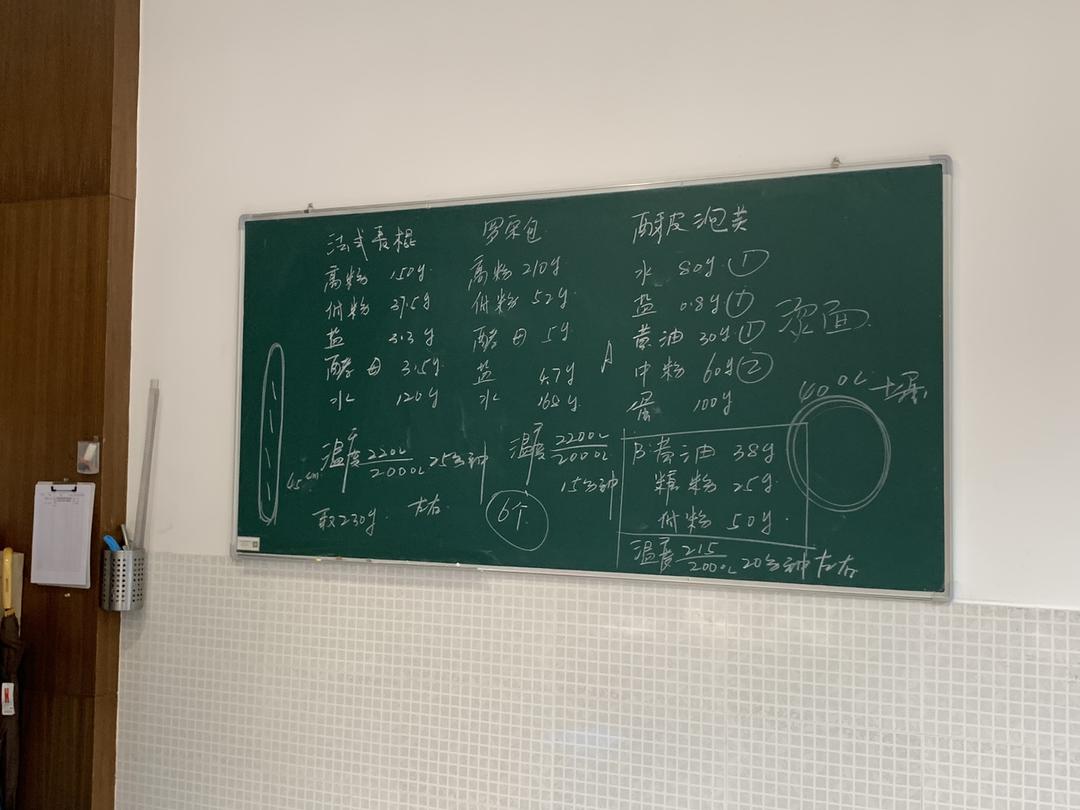 法式长棍
高粉 150g
低粉 37.5g
盐 3.3g
酵母 3.5g
水 120g
温度 220℃/200℃ 25分钟
左右
45cm
取230g
罗宋包
高粉 210g
低粉 52g
酵母 5g
盐 4.7g
水 168g
温度 220℃/200℃
15分钟
6个
酥皮泡芙
A
水 80g ①
盐 0.8g ①
黄油 30g ①
中粉 60g ②
蛋 100g
烫面
40℃ 加蛋
B 黄油 38g
糖粉 25g
低粉 50g
温度 215/200℃ 20分钟左右